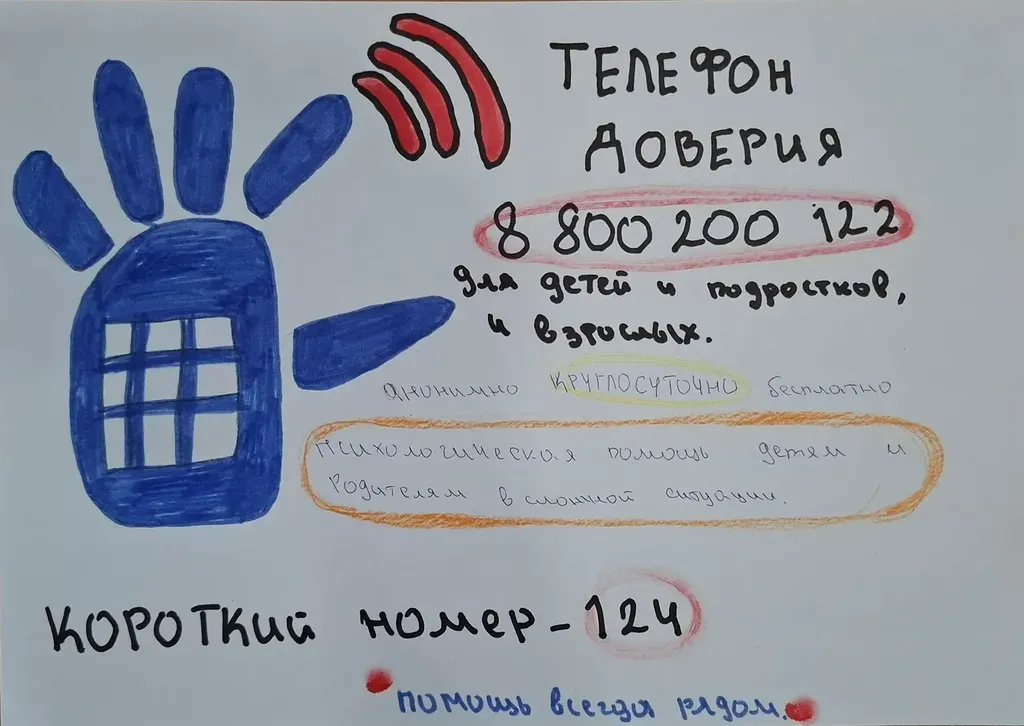 ТЕЛЕФОН
ДОВЕРИЯ
8 800 200 122
для детей и подростков,
и взрослых.
анонимно КРУГЛОСУТОЧНО бесплатно
Психологическая помощь детям и
родителям в сложной ситуации.
КОРОТКИЙ номер - 124
помощь всегда рядом.